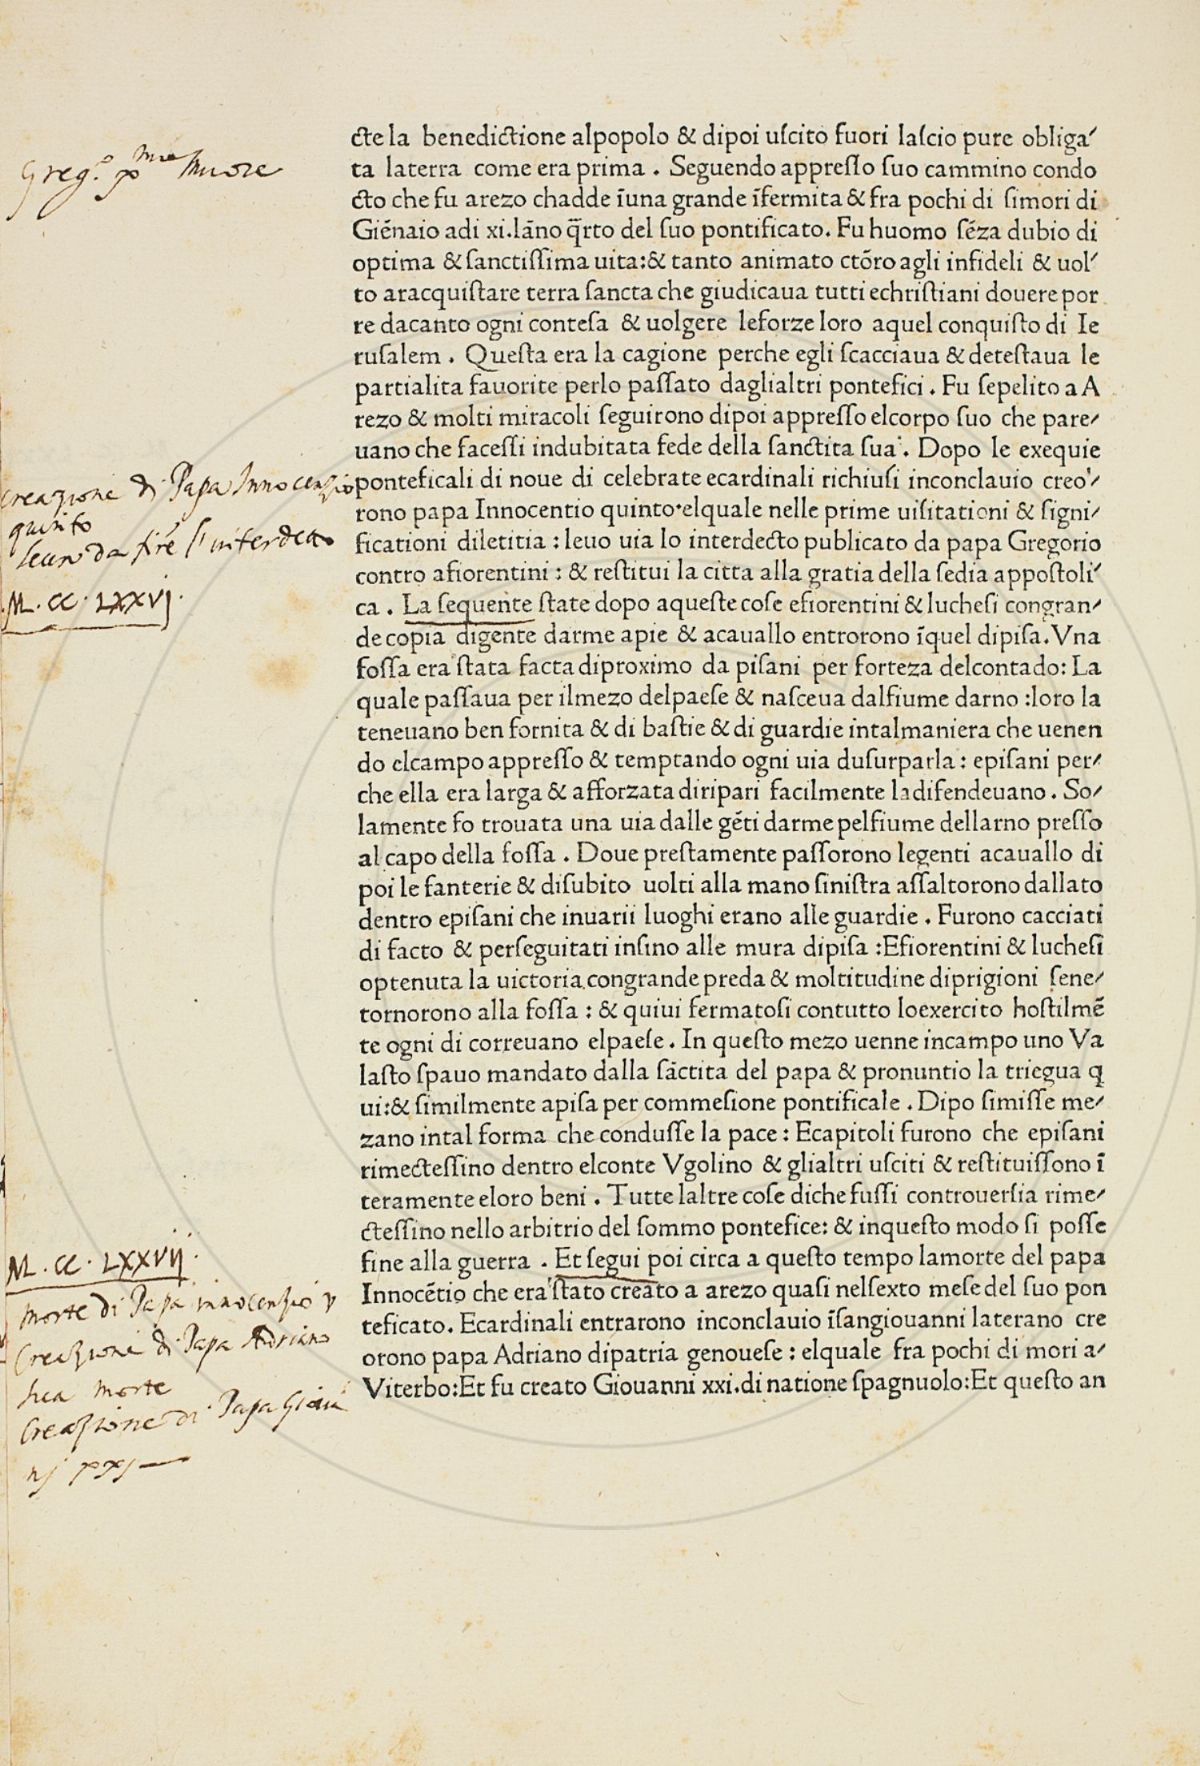 cte la benedictione alpopolo & dipoi uſcito fuori laſcio pure obliga⸗
ta laterra come era prima . Seguendo appreſſo ſuo cammino condo
cto che fu arezo chadde ĩuna grande ĩfermita & fra pochi di ſimori di
Giẽnaio adi xi.lãno q̃rto del ſuo pontificato. Fu huomo ſẽza dubio di
optima & ſanctiſſima uita:& tanto animato ctõro agli infideli & uol⸗
to aracquiſtare terra ſancta che giudicaua tutti echriſtiani douere por
re dacanto ogni conteſa & uolgere leforze loro aquel conquiſto di Ie
ruſalem . Queſta era la cagione perche egli ſcacciaua & deteſtaua le
partialita fauorite perlo paſſato daglialtri pontefici . Fu ſepelito a A
rezo & molti miracoli ſeguirono dipoi appreſſo elcorpo ſuo che pare⸗
uano che faceſſi indubitata fede della ſanctita ſua . Dopo le exequie
ponteficali di noue di celebrate ecardinali richiuſi inconclauio creo⸗
rono papa Innocentio quinto·elquale nelle prime uiſitationi & ſigni⸗
ficationi diletitia : leuo uia lo interdecto publicato da papa Gregorio
contro afiorentini : & reſtitui la citta alla gratia della ſedia appoſtoli⸗
ca . La ſequente ſtate dopo aqueſte coſe efiorentini & lucheſi congran⸗
de copia digente darme apie & acauallo entrorono ĩquel dipiſa. Vna
foſſa era ſtata facta diproximo da piſani per forteza delcontado: La
quale paſſaua per ilmezo delpaeſe & naſceua dalfiume darno :loro la
teneuano ben fornita & di baſtie & di guardie intalmaniera che uenen
do elcampo appreſſo & temptando ogni uia duſurparla : epiſani per⸗
che ella era larga & afforzata diripari facilmente ladifendeuano . So⸗
lamente fo trouata una uia dalle gẽti darme pelfiume dellarno preſſo
al capo della foſſa . Doue preſtamente paſſorono legenti acauallo di
poi le fanterie & diſubito uolti alla mano ſiniſtra aſſaltorono dallato
dentro epiſani che inuarii luoghi erano alle guardie . Furono cacciati
di facto & perſeguitati inſino alle mura dipiſa :Efiorentini & lucheſi
optenuta la uictoria congrande preda & moltitudine diprigioni ſene⸗
tornorono alla foſſa : & quiui fermatoſi contutto loexercito hoſtilmẽ
te ogni di correuano elpaeſe . In queſto mezo uenne incampo uno Va
laſto ſpauo mandato dalla ſãctita del papa & pronuntio la triegua q
ui:& ſimilmente apiſa per commeſione pontificale . Dipo ſimiſſe me⸗
zano intal forma che conduſſe la pace : Ecapitoli furono che epiſani
rimecteſſino dentro elconte Vgolino & glialtri uſciti & reſtituiſſono ĩ
teramente eloro beni . Tutte laltre coſe diche fuſſi controuerſia rime⸗
cteſſino nello arbitrio del ſommo pontefice: & inqueſto modo ſi poſſe
fine alla guerra . Et ſegui poi circa a queſto tempo lamorte del papa
Innocẽtio che era ſtato creato a arezo quaſi nelſexto meſe del ſuo pon
teficato. Ecardinali entrarono inconclauio ĩſangiouanni laterano cre
orono papa Adriano dipatria genoueſe : elquale fra pochi di mori a⸗
Viterbo:Et fu creato Giouanni xxi.di natione ſpagnuolo:Et queſto an
Greg.º muore
creazione di Papa Innocenzio
quinto
l'interdetto
M.CC.LXXVJ.
M.CC.LXXVIJ.
morte di Papa innocenzio v
Creazione di Papa Adriano
sua morte
Creazione di Papa Giovã
nj xxj